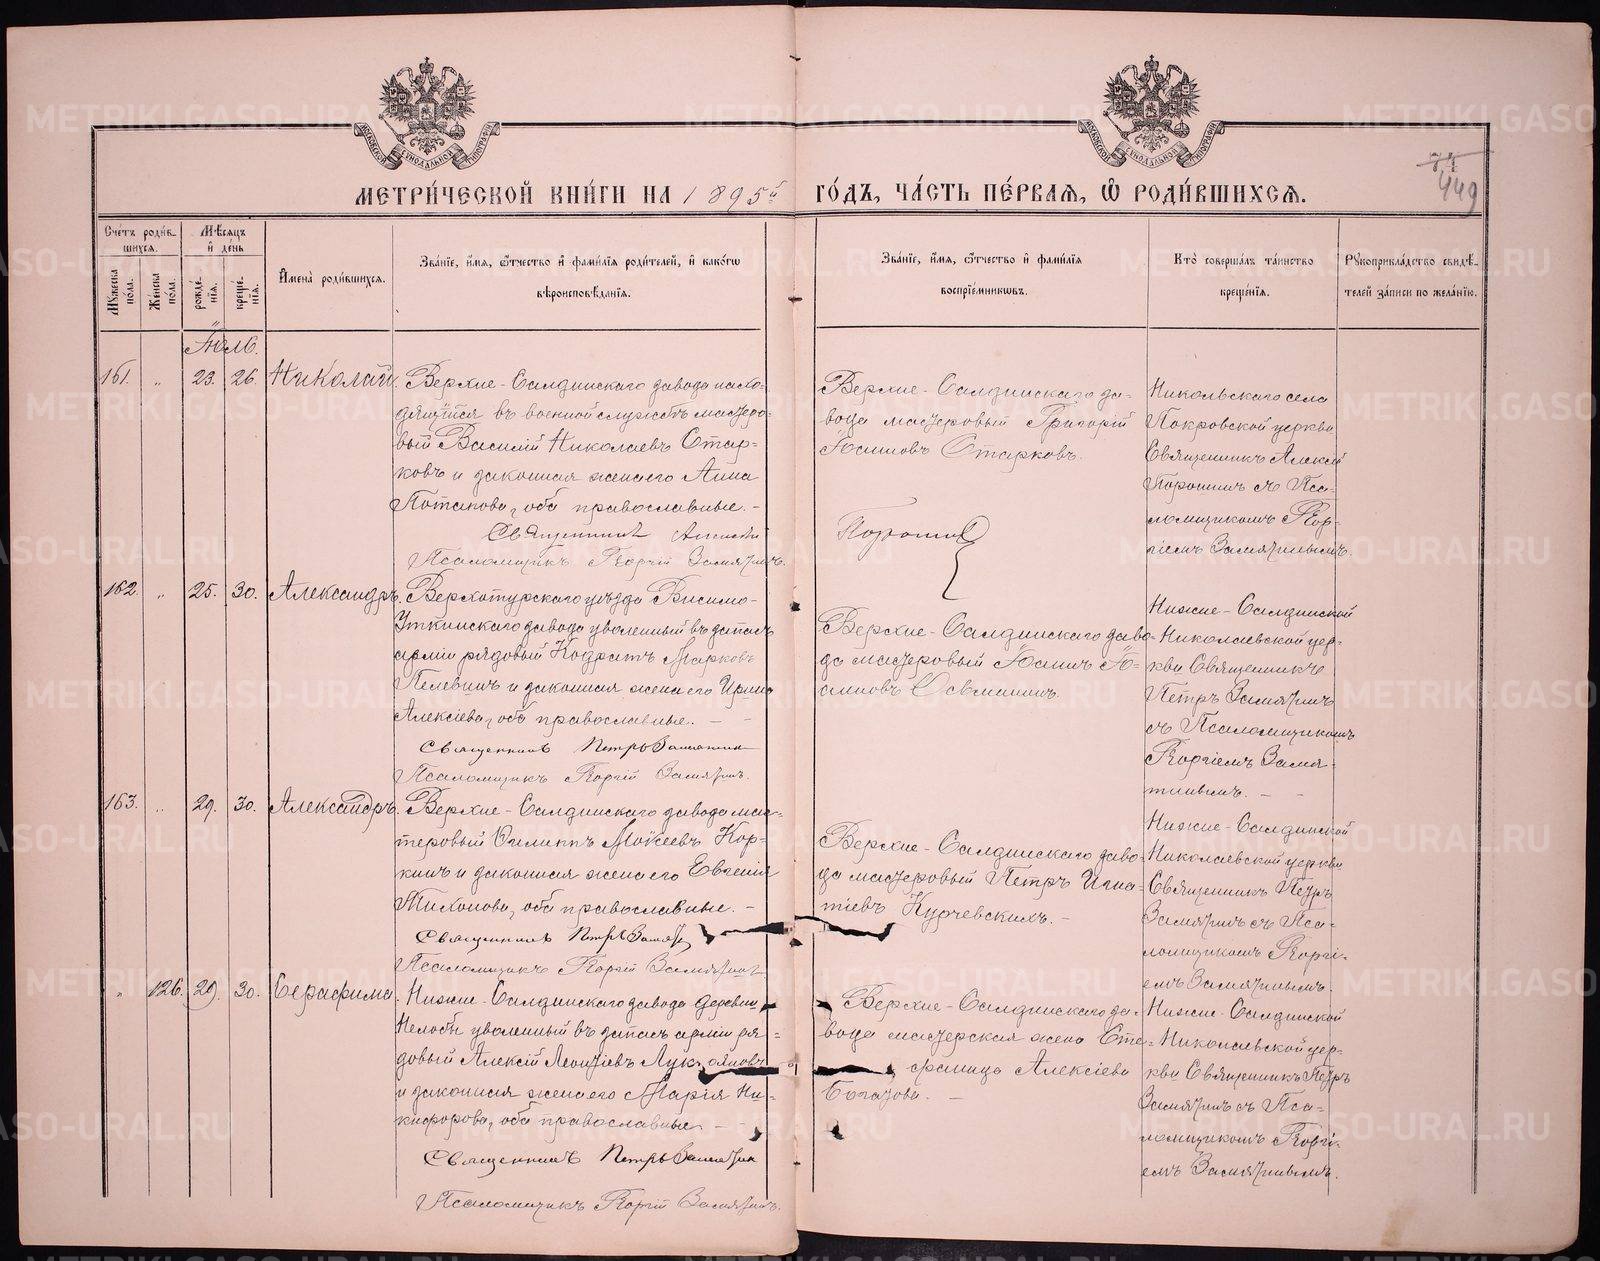 МЕТРИ́ЧЕСКОЙ КНИ́ГИ НА 1895й ГО́ДЪ, ЧА́СТЬ ПЕ́РВАЯ, Ѡ РОДИ́ВШИХСѦ.
74
449
МОСКОВСКОЙ СѴНОДАЛЬНОЙ ТИПОГРАФІИ
МОСКОВСКОЙ СѴНОДАЛЬНОЙ ТИПОГРАФІИ
Счетъ роди́вшихся.
Мужеска пола.
Же́нска по́ла.
Мѣсяцъ и де́нь
рожде́нія.
креще́нія.
Имена̀ роди́вшихся.
Зва́ніе, и́мя, ѻ́тчество и фами́лія роди́телей, и како́гѡ
вѣроисповѣ́данія.
Зва́ніе, и́мя, ѻ́тчество и фами́лія
воспріе́мниковъ.
Кто̀ соверша́лъ та́инство
креще́нія.
Рукоприкла́дство свидѣ́-
телей за́писи по жела́нію.
Іюль.
161. „ 23. 26. Николай.
Верхне-Салдинскаго завода нахо-
дящійся въ военной службѣ мастеро-
вый Василій Николаевъ Стар-
ковъ и законная жена его Анна
Потапова, оба православные. -
Священникъ Алексѣй
Псаломщикъ Георгій Замятинъ.
Верхне-Салдинскаго за-
вода мастеровый Григорій
Іоанновъ Старковъ.
Порошинъ
Никольскаго села
Покровской церкви
Священникъ Алексѣй
Порошинъ съ Пса-
ломщикомъ Геор-
гіемъ Замятинымъ.
162. „ 25. 30. Александръ.
Верхотурскаго уѣзда Висимо-
Уткинскаго завода уволенный въ запасъ
арміи рядовый Кодратъ Марковъ
Пелевинъ и законная жена его Ирина
Алексіева, оба православные. - -
Священникъ Петръ Замятинъ
Псаломщикъ Георгій Замятинъ.
Верхне-Салдинскаго заво-
да мастеровый Іоаннъ Іо-
анновъ
Нижне-Салдинской
Николаевской цер-
кви Священникъ
Петръ Замятинъ
съ Псаломщикомъ
Георгіемъ Замя-
тинымъ. - -
163. „ 29. 30. Александръ.
Верхне-Салдинскаго завода мас-
теровый Филиппъ Мокеевъ Кор-
кинъ и законная жена его Евгенія
Тихонова, оба православные. -
Священникъ Петръ Замят
Псаломщикъ Георгій Замятинъ
Верхне-Салдинскаго заво-
да мастеровый Петръ Игна-
тіевъ Курчевскихъ. -
Нижне-Салдинской
Николаевской церкви
Священникъ Петръ
Замятинъ съ Пса-
ломщикомъ Георгі-
емъ Замятинымъ.
„ 126. 29. 30. Серафима.
Нижне-Салдинскаго завода деревни
Нелобы уволенный въ запасъ арміи ря-
довый Алексій Леонтіевъ Лукояновъ
и законная жена его Марія Ни-
кифорова, оба православные. -
Священникъ Петръ Замятин
Псаломщикъ Георгій Замятинъ.
Верхне-Салдинскаго за-
вода мастерская жена Сте-
фанида Алексіева
Богатова. -
Нижне-Салдинской
Николаевской цер-
кви Священникъ Петръ
Замятинъ съ Пса-
ломщикомъ Георгі-
емъ Замятинымъ.
METRIKI.GASO-URAL.RU